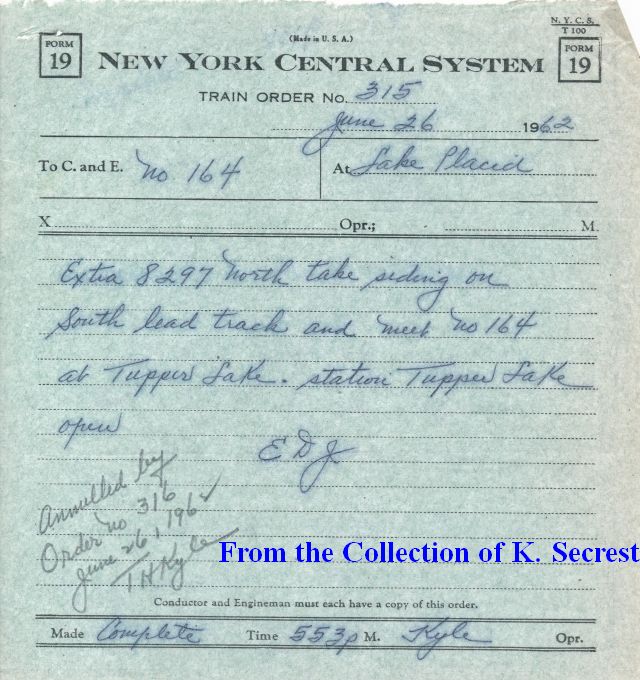 N. Y. C. S.
T 100
(Made in U. S. A.)
FORM
19
NEW YORK CENTRAL SYSTEM
FORM
19
TRAIN ORDER No. 315
June 26 1962
To C. and E. No 164 At Lake Placid
X Opr.; M.
Extra 8297 North take siding on
South lead track and meet No 164
at Tupper Lake. station Tupper Lake
open
EDJ
Annulled by
Order no 316
June 26, 1962
T H Kyle
From the Collection of K. Secrest
Conductor and Engineman must each have a copy of this order.
Made Complete Time 553p M. Kyle Opr.